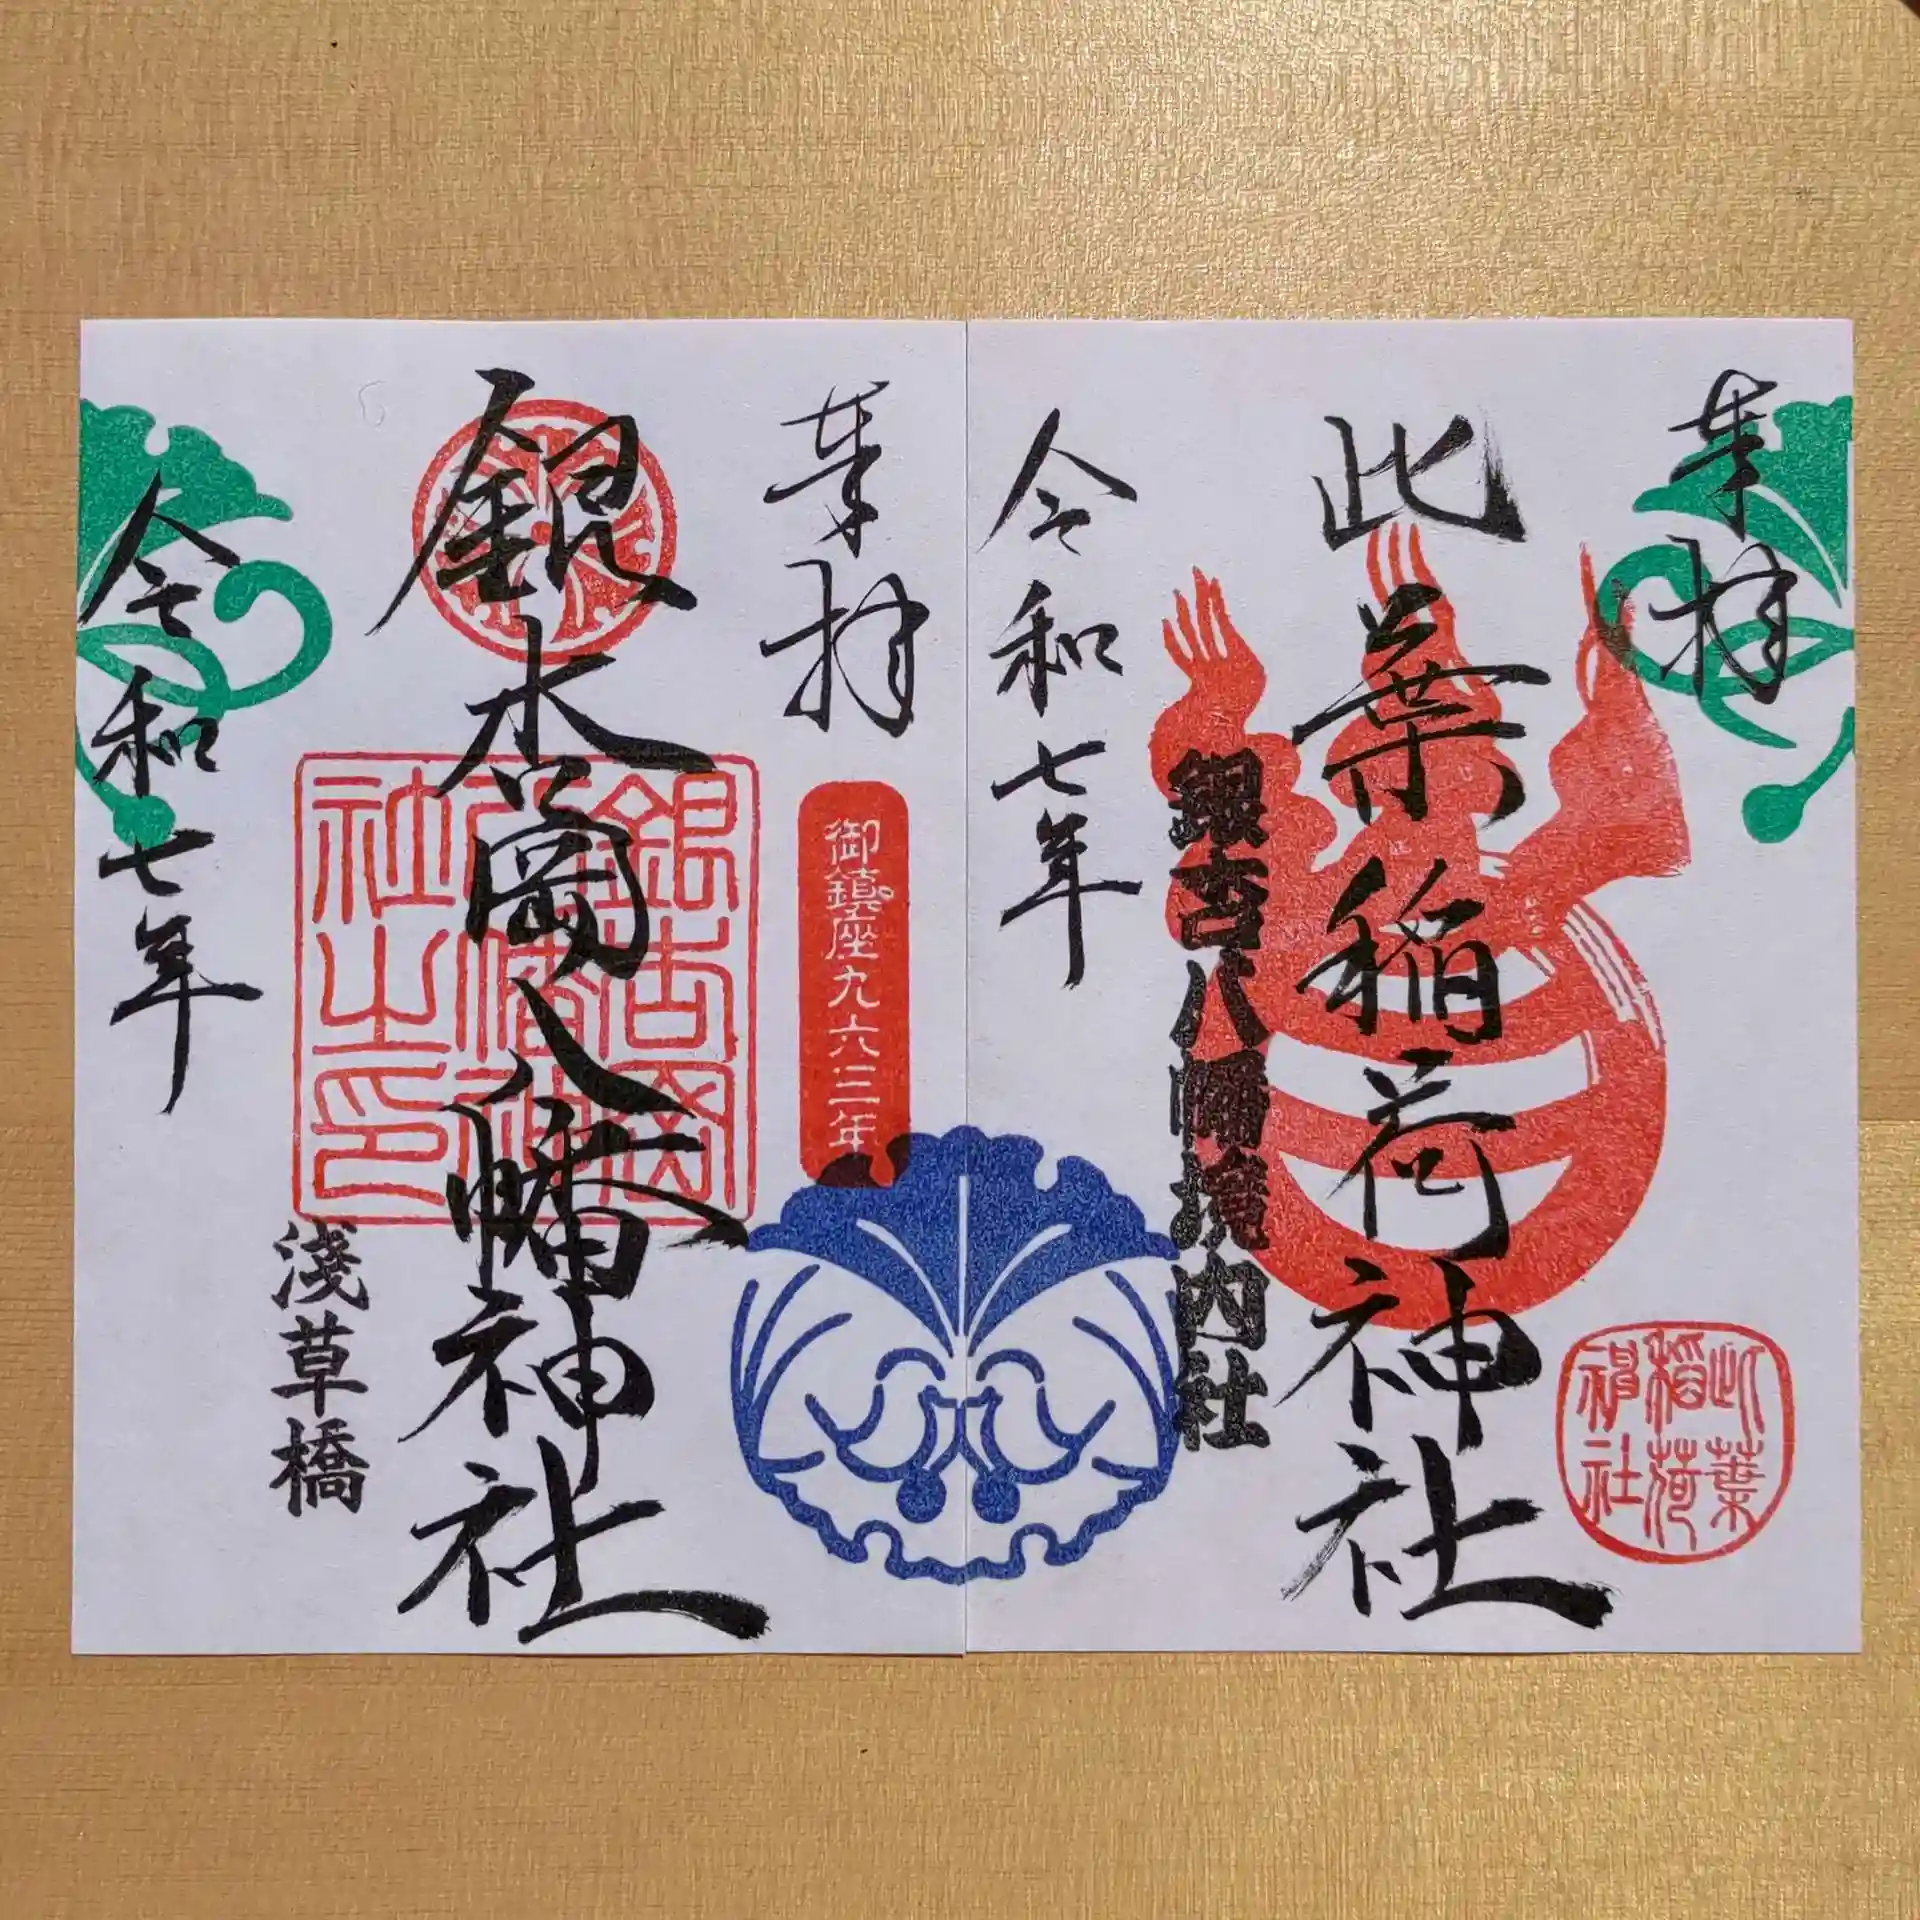 奉拝
此葉稲荷神社
此葉稲荷神社
銀杏八幡境内社
令和七年
奉拝
御鎮座九六三年
銀杏岡八幡神社
銀杏岡八幡神社之印
淺草橋
令和七年